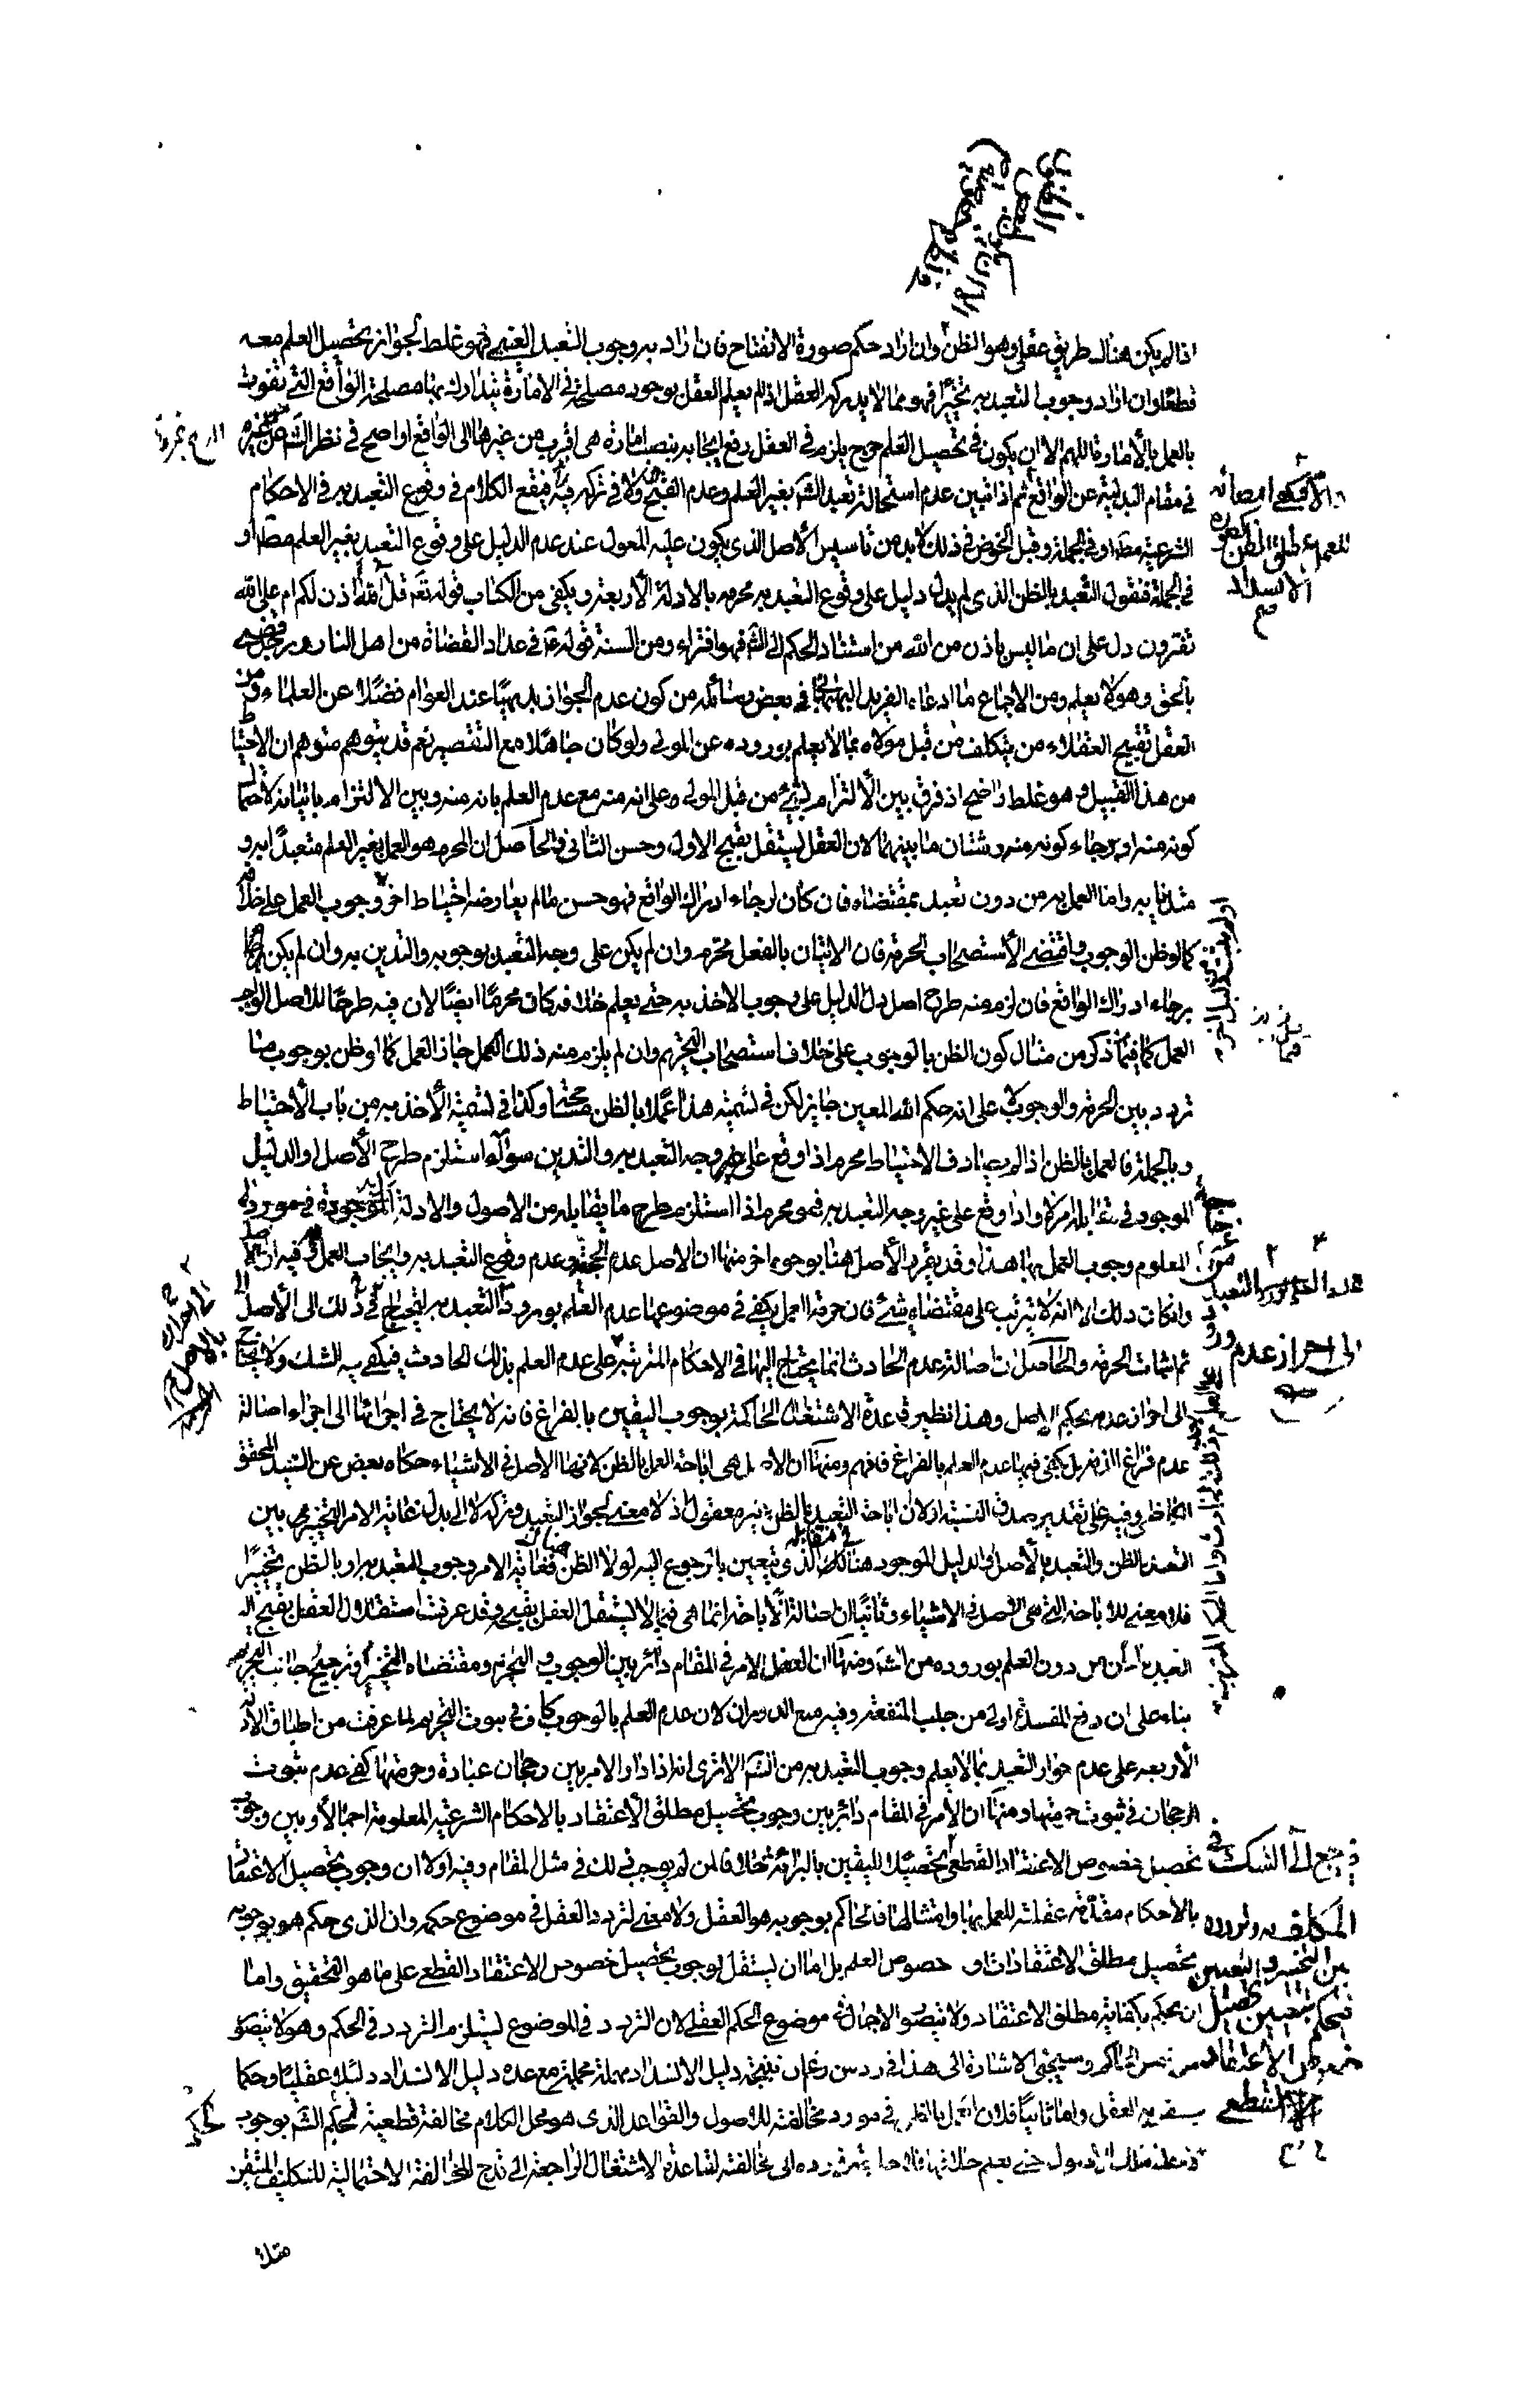 اذا لم يكن هناك طريق عقلى وهو الظن وان اراد حكم صورة الانفتاح فان اراد به وجوب التعبد العينى فهو غلط لجواز تحصيل العلم معه
قطعا وان اراد وجوب التعبد به تخييرا فهو مما لا يدركه العقل اذ لم يعلم العقل بوجود مصلحة فى الامارة يتدارك بها مصلحة الواقع التى تفوت
بالعمل بالأمارة اللهم الا ان يكون فى تحصيل العلم حرج يلزم فى العقل رفع ايجابه بنصب امارة هى اقرب من غيرها الى الواقع او اصح فى نظر الشه من غيره
فى مقام البدلية عن الواقع ثم اذا تبين عدم استحالة تعبد الشه بغير العلم وعدم القبح فيه ولا فى تركه فيقع الكلام فى وقوع التعبد به فى الاحكام
الشرعية مطه او فى الجملة وقبل الخوض فى ذلك لا بد من تأسيس الأصل الذى يكون عليه المعول عند عدم الدليل على وقوع التعبد بغير العلم مطه او
فى الجملة فنقول التعبد بالظن الذى لم يدل دليل على وقوع التعبد به محرم بالادلة الأربعة ويكفى من الكتاب قوله تعه قل ءالله أذن لكم ام على الله
تفترون دل على ان ما ليس باذن من الله من اسناد الحكم الى الشه فهو افتراء ومن السنة قوله ع فى عداد القضاة من اهل النار ورجل قضى
بالحق وهو لا يعلم ومن الاجماع ما ادعاه الفريد البهبهانى فى بعض رسائله من كون عدم الجواز بديهيا عند العوام فضلا عن العلماء ومن
العقل تقبيح العقلاء من يتكلف من قبل مولاه بما لا يعلم بوروده عن المولى ولو كان جاهلا مع التقصير نعم قد يتوهم متوهم ان الاحتياط
من هذا القبيل وهو غلط واضح اذ فرق بين الألتزام بشئ من قبل المولى وعلى انه منه مع عدم العلم بانه منه وبين الالتزام باتيانه لاحتمال
كونه منه او رجاء كونه منه وشتان ما بينهما لان العقل يستقل بقبح الاول وحسن الثانى فالحاصل ان المحرم هو العمل بغير العلم متعبدا به و
متدينا به واما العمل به من دون تعبد بمقتضاه فان كان لرجاء ادراك الواقع فهو حسن ما لم يعارضه احتياط اخر وجوب العمل على خلافه
كما لو ظن الوجوب واقتضى الأستصحاب الحرمة فان الاتيان بالفعل محرم وان لم يكن على وجه التعبد بوجوبه والتدين به وان لم يكن
برجاء ادراك الواقع فان لزم منه طرح اصل دل الدليل على وجوب الاخذ به حتى يعلم خلافه كان محرما ايضا لان فيه طرحا للاصل الواجب
العمل كما فيما ذكر من مثال كون الظن بالوجوب على خلاف استصحاب التحريم وان لم يلزم منه ذلك العمل جاز العمل كما لو ظن بوجوب ما
تردد بين الحرمة والوجوب لا على انه حكم الله المعين جايز لكن فى تسمية هذا عملا بالظن مسامحة وكذا فى تسمية الأخذ به من باب الأحتياط
وبالجملة فالعمل بالظن اذا لم يصادف الاحتياط محرم اذا وقع على وجه التعبد به والتدين سواء استلزم طرح الأصل او الدليل
الموجود فى مقابله ام لا واذا وقع على غير وجه التعبد به فهو محرم اذا استلزم طرح ما يقابله من الاصول والادلة الموجودة فى مورده
المعلوم وجوب العمل بها هذا وقد يقرر الأصل هنا بوجوه اخر منها ان الاصل عدم الحجية وعدم وقوع التعبد به وايجاب العمل به وفيه ان
وان كان ذلك الا انه لا يترتب على مقتضاه شئ فان حرمة العمل يكفى فى موضوعها عدم العلم بورود التعبد به ليحتاج فى ذلك الى الأصل
ثم اثبات الحرمة والحاصل ان اصالة عدم الحادث انما يحتاج اليها فى الاحكام المترتبة على عدم العلم بذلك الحادث فيكفى به الشك ولا يحتاج
الى احراز عدمه بحكم الاصل وهذا نظير قاعدة الاشتغال الحاكمة بوجوب اليقين بالفراغ فانه لا يحتاج فى اجرائها الى اجراء اصالة
عدم فراغ الذمة بل يكفى فيها عدم العلم بالفراغ فافهم ومنها ان الاصل هى اباحة العمل بالظن لانها الاصل فى الاشياء حكاه بعض عن السيد المحقق
الكاظمى وفيه على تقدير صدق النسبة اولا ان اباحة التعبد بالظن غير معقول اذ لا معنى لجواز التعبد وتركه لا الى بدل غاية الامر التخيير بين
التعبد بالظن والتعبد بالأصل او الدليل الموجود هناك فى مقابله الذى يتعين بالرجوع اليه لولا الظن فغاية الامر وجوب التعبد به او بالظن تخييرا
فلا معنى للاباحة التى هى الاصل فى الاشياء وثانيا ان اصالة الأباحة انما هى فيما لا يستقل العقل بقبحه وقد عرفت استقلال العقل بقبح
التعبد بالظن من دون العلم بوروده من الشه ومنها ان الامر فى المقام دائر بين الوجوب والتحريم ومقتضاه التخيير او ترجيح جانب التحريم
بناء على ان دفع المفسدة اولى من جلب المنفعة وفيه منع الدوران لان عدم العلم بالوجوب كاف فى ثبوت التحريم لما عرفت من اطباق الادلة
الأربعة على عدم جواز التعبد بما لا يعلم وجوب التعبد به من الشه الا ترى انه اذا دار الامر بين رجحان عبادة وحرمتها كفى عدم ثبوت
الرجحان فى ثبوت حرمتها ومنها ان الأمر فى المقام دائر بين وجوب تحصيل مطلق الأعتقاد بالاحكام الشرعية المعلومة اجمالا وبين وجوب
تحصيل خصوص الاعتقاد القطعى تحصيلا لليقين بالبرائة خلافا لمن لم يوجب ذلك فى مثل المقام وفيه اولا ان وجوب تحصيل الاعتقاد
بالأحكام مقدمة عقلية للعمل بها وامتثالها فالحاكم بوجوبه هو العقل ولا معنى لتردد العقل فى موضوع حكمه وان الذى حكم هو بوجوبه
تحصيل مطلق الاعتقاد او خصوص العلم بل اما ان يستقل بوجوب تحصيل خصوص الاعتقاد القطعى على ما هو التحقيق واما
ان يحكم بكفاية مطلق الاعتقاد ولا يتصور الاجمال فى موضوع الحكم العقلى لان التردد فى الموضوع يستلزم التردد فى الحكم وهو لا يتصور
من نفس الحاكم وسيجئ الاشارة الى هذا فى رد من زعم ان نتيجة دليل الانسداد مهملة مجملة مع عده دليل الانسداد دليلا عقليا وحكما
يستقل به العقل واما ثانيا فلان العمل بالظن فى مورد مخالفته للاصول والقواعد الذى هو محل الكلام مخالفة قطعية لحكم الشه بوجوب
الاخذ بتلك الاصول حتى يعلم خلافها فلا حاجة فى رده الى مخالفته لقاعدة الاشتغال الراجعة الى قدح المخالفة الاحتمالية للتكليف المتيقن
فيرجع الى الشك فى
المكلف به وتردده
بين التخيير والتعيين
فيحكم بتعيين تحصيل
خصوص الاعتقاد
القطعى
مثلا